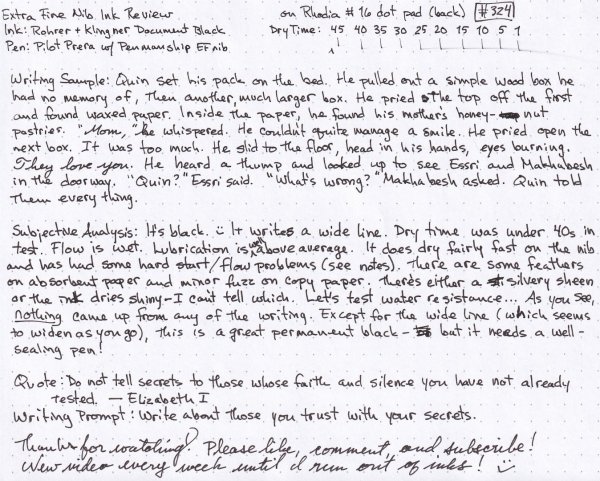 Extra Fine Nib Ink Review on Rhodia #16 dot pad (back) #324
Ink: Rohrer + Klingner Document Black Dry Time: 45 40 35 30 25 20 15 10 5 1
Pen: Pilot Prera w/ Penmanship EF nib
Writing Sample: Quin set his pack on the bed. He pulled out a simple wood box he
had no memory of, Then another, much larger box. He pried the top off the first
and found waxed paper. Inside the paper, he found his mother's honey-nut
pastries. "Mom," he whispered. He couldn't quite manage a smile. He pried open the
next box. It was too much. He slid to the floor, head in his hands, eyes burning.
They love you. He heard a thump and looked up to see Essri and Makhabesh
in the doorway. "Quin?" Essri said. "What's wrong?" Makhabesh asked. Quin told
Them every thing.
Subjective Analysis: It's black. :) It writes a wide line. Dry time was under 40s in
test. Flow is wet. Lubrication is well above average. It does dry fairly fast on the nib
and has had some hard start/flow problems (see notes). There are some feathers
on absorbent paper and minor fuzz on copy paper. There's either a silvery sheen
or the ink dries shiny - I can't tell which. Let's test water resistance... As you see,
nothing came up from any of the writing. Except for the wide line (which seems
to widen as you go), This is a great permanent black - but it needs a well-
sealing pen!
Quote: Do not tell secrets to those whose faith and silence you have not already
tested. — Elizabeth I
Writing Prompt: Write about those you trust with your secrets.
Thanks for watching! Please like, comment, and subscribe!
New video every week until I run out of inks! :)